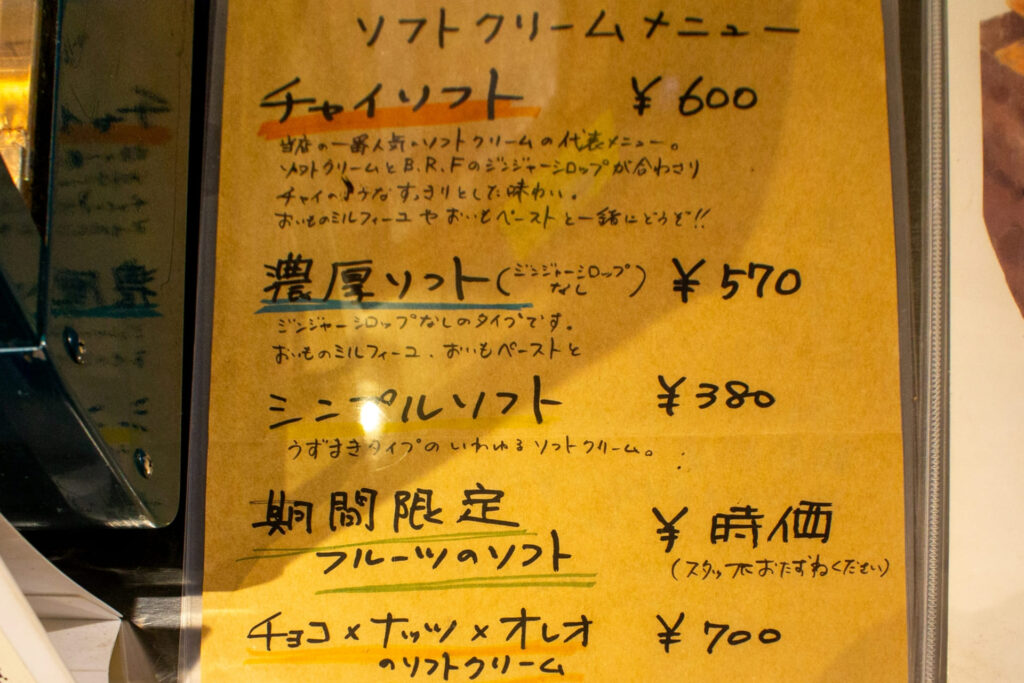 ソフトクリームメニュー
チャイソフト ¥600
当店の一番人気のソフトクリームの代表メニュー。
ソフトクリームとB.R.Fのジンジャーシロップが合わさり
チャイのようなすっきりとした味わい。
おいものミルフィーユやおいもペーストと一緒にどうぞ!!
濃厚ソフト(ジンジャーシロップなし) ¥570
ジンジャーシロップなしのタイプです。
おいものミルフィーユ、おいもペーストと
シンプルソフト ¥380
うずまきタイプのいわゆるソフトクリーム。
期間限定
フルーツのソフト ¥時価
(スタッフにおたずねください)
チョコ×ナッツ×オレオ ¥700
のソフトクリーム